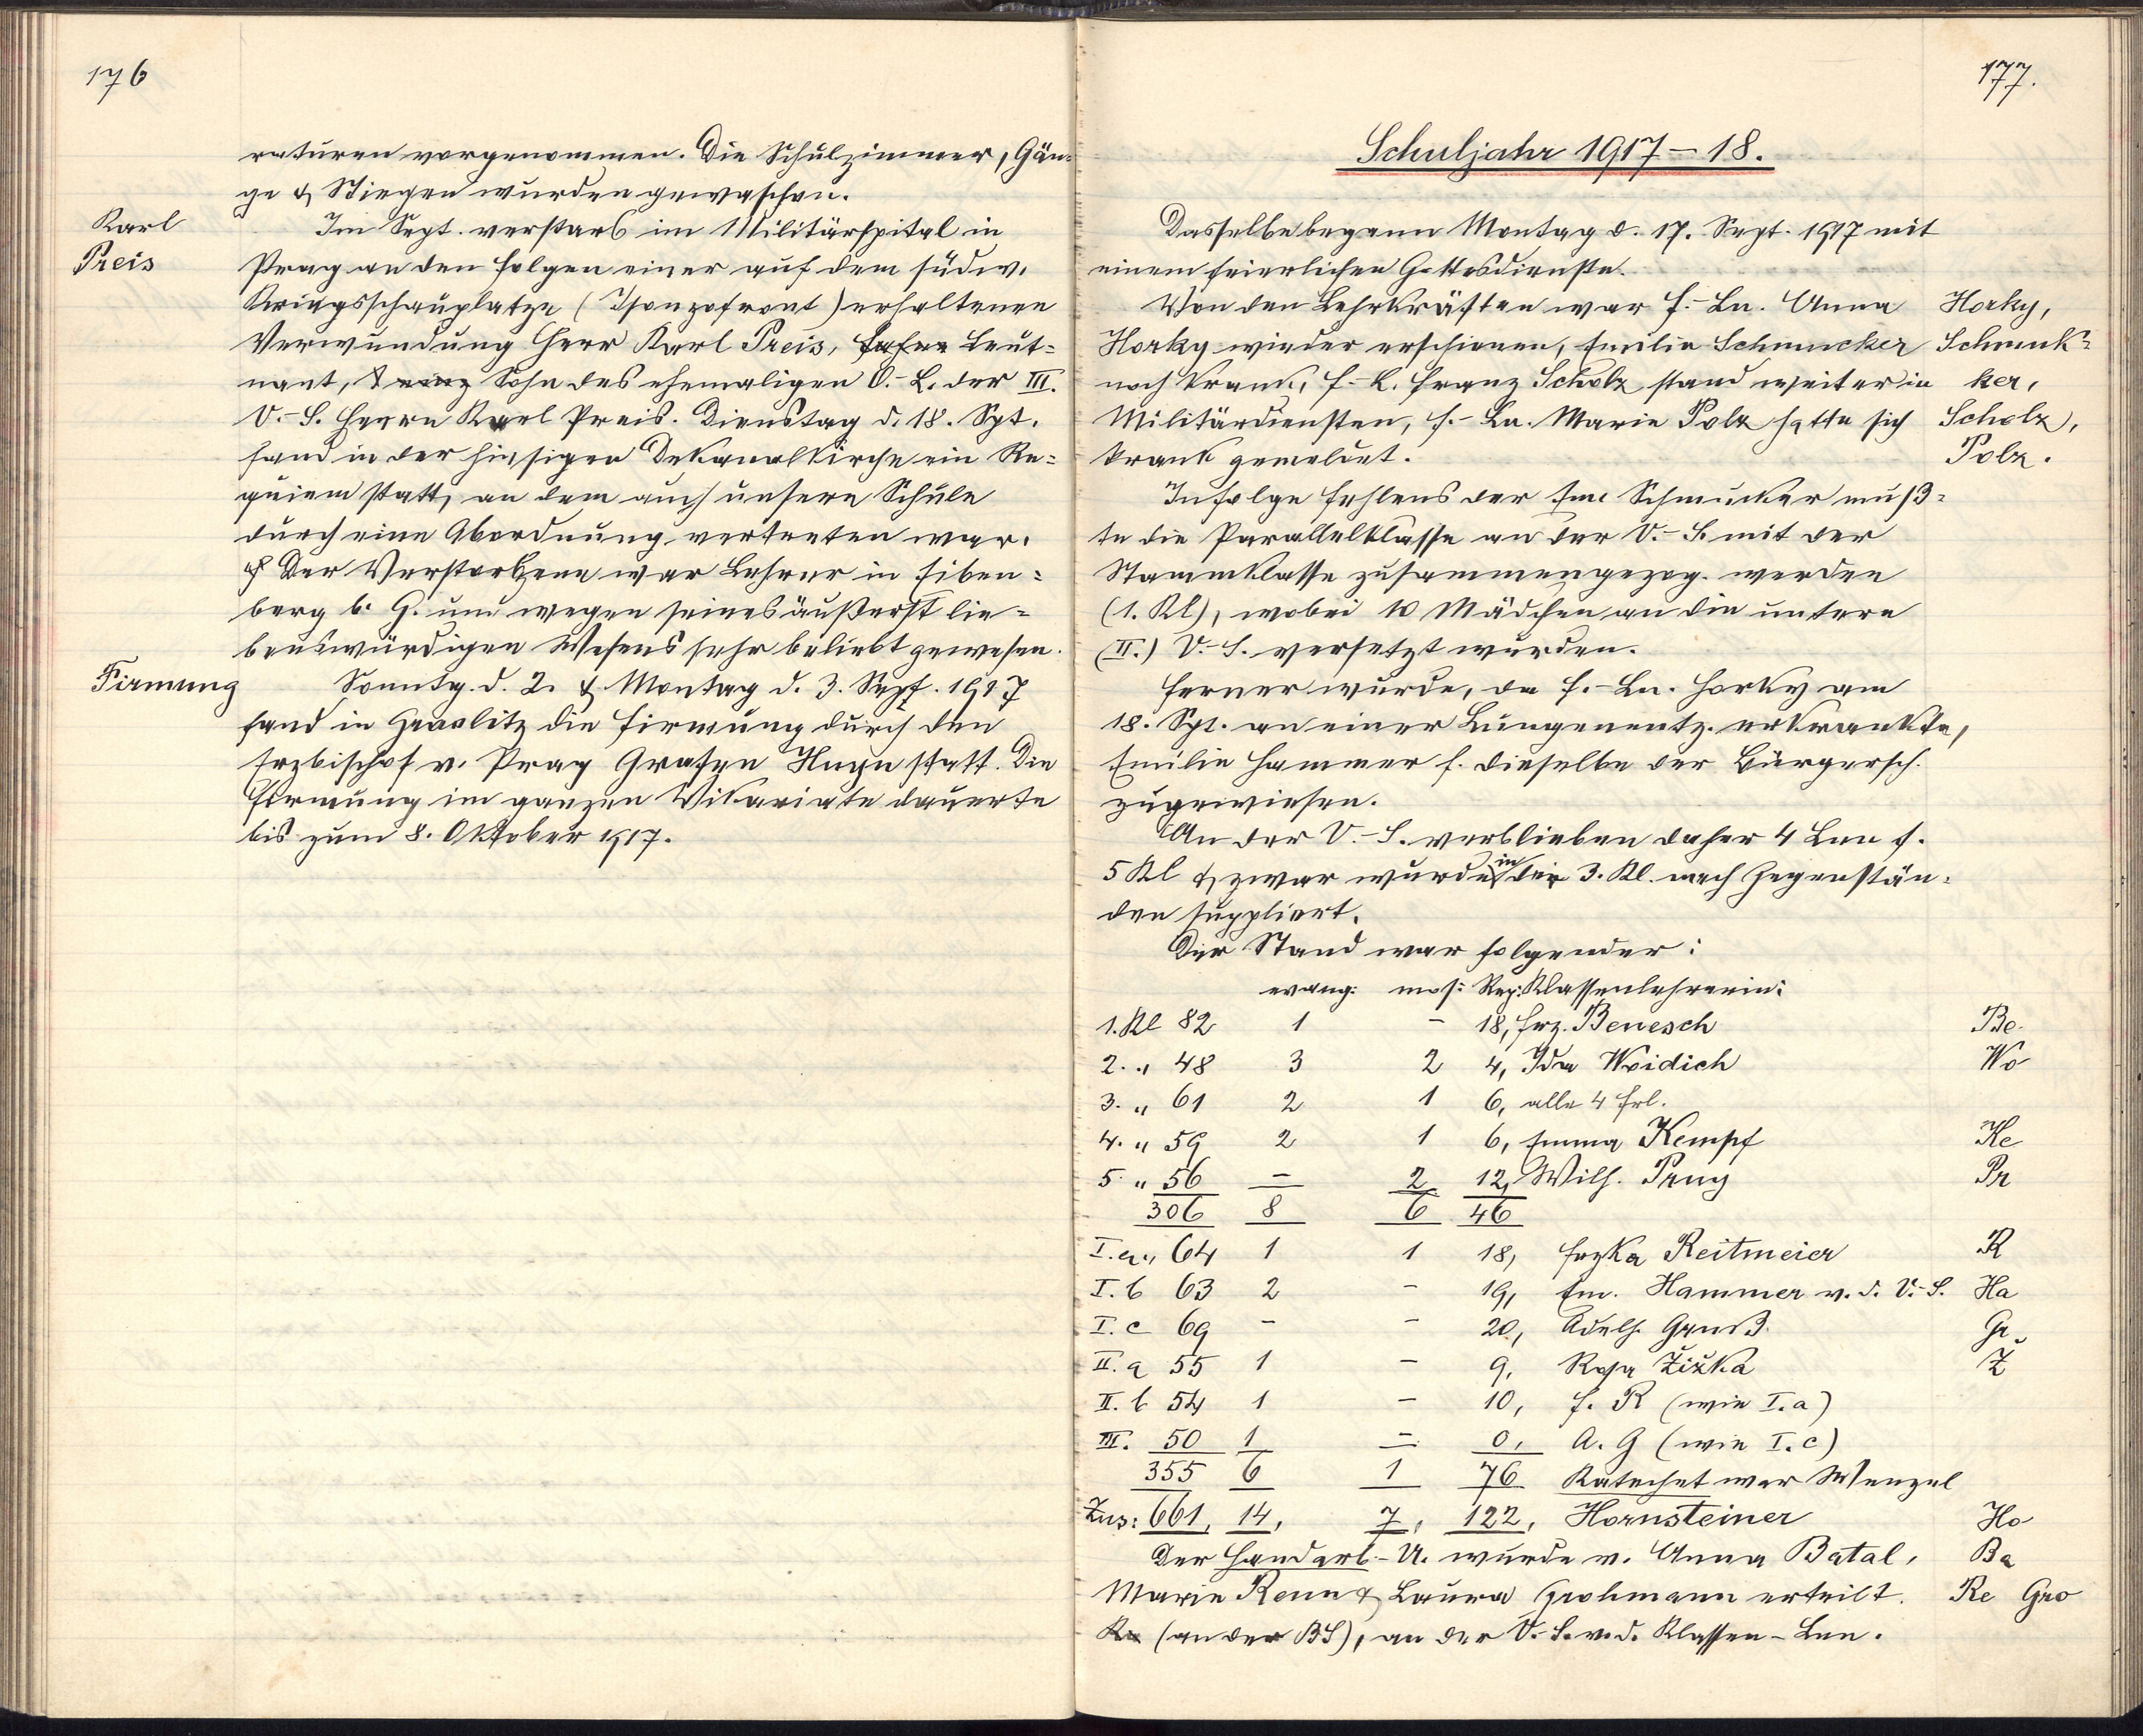 176
raturen vorgenommen. Die Schulzimmer, Gän-
ge & Stiegen wurden gewaschen.
Karl
Preis
Im Sept. verstarb im Militärspital in
Prag an den Folgen einer auf dem südw.
Kriegsschauplatze (Isonzofront) erhaltenen
Verwundung Herr Karl Preis, Leut-
nant, Sohn des ehemaligen O.-L. der III.
V.-S. Herrn Karl Preis. Dienstag d. 18. Spt.
fand in der hiesigen Dekanalkirche ein Re-
quiem statt, an dem auch unsere Schule
durch eine Abordnung vertreten war.
Der Verstorbene war Lehrer in Eiben-
berg b. G. und wegen seines äußerst lie-
benswürdigen Wesens sehr beliebt gewesen.
Firmung
Sonntg. d. 2. & Montag d. 3. Sept. 1917
fand in Graslitz die Firmung durch den
Erzbischof v. Prag Grafen Huyn statt. Die
Firmung im ganzen Vikariate dauerte
bis zum 8. Oktober 1917.
177.
Schuljahr 1917–18.
Dasselbe begann Montag d. 17. Sept. 1917 mit
einem feierlichen Gottesdienste.
Von den Lehrkräften war F.-Ln. Anna Horky,
Horky wieder erschienen, Emilie Schmucker Schmuk-
noch krank, F.-L. Franz Scholz stand weiter in ker,
Militärdiensten, F.-Ln. Marie Polz hatte sich Scholz,
krank gemeldet. Polz.
Infolge Fehlens der Em. Schmucker muß-
te die Parallelklasse an der V.-S. mit der
Stammklasse zusammengezog. werden
(1. Kl), wobei 10 Mädchen an die untere
(II.) V.-S. versetzt wurden.
Ferner wurde, da F.-Ln. Horky am
18. Spt. an einer Lungenentz. erkrankte,
Emilie Hammer f. dieselbe der Bürgersch.
zugewiesen.
An der V.-S. verblieben daher 4 Lnn f.
5 Kl & zwar wurde in der 3. Kl. nach Gegenstän-
den suppliert.
Der Stand war folgender:
evang: mos: Rep: Klassenlehrerin:
1. Kl 82 1 – 18, Frz. Benesch Be
2. „ 48 3 2 4, Ida Woidich Wo
3. „ 61 2 1 6, alle 4 Frl.
4. „ 59 2 1 6, Emma Kempf Ke
5 „ 56 – 2 12, Wilh. Prug Pr
306 8 6 46
I. a „ 64 1 1 18, Frzka Reitmeier R
I. b 63 2 – 19, Em. Hammer v. d. V.-S. Ha
I. c 69 – – 20, Adelh. Gruß Gr
II. a 55 1 – 9, Rosa Žižka Ž
II. b 54 1 – 10, F. R (wie I. a)
III. 50 1 – 0, A. G (wie I. c)
355 6 1 76 Katechet war Wenzel
Zus: 661, 14, 7, 122, Hornsteiner Ho
Der Handarb.-U. wurde v. Anna Batal, Ba
Marie Renn & Laura Grohmann erteilt. Re Gro
(an der BS), an der V.-S. v. d. Klassen-Lnn.